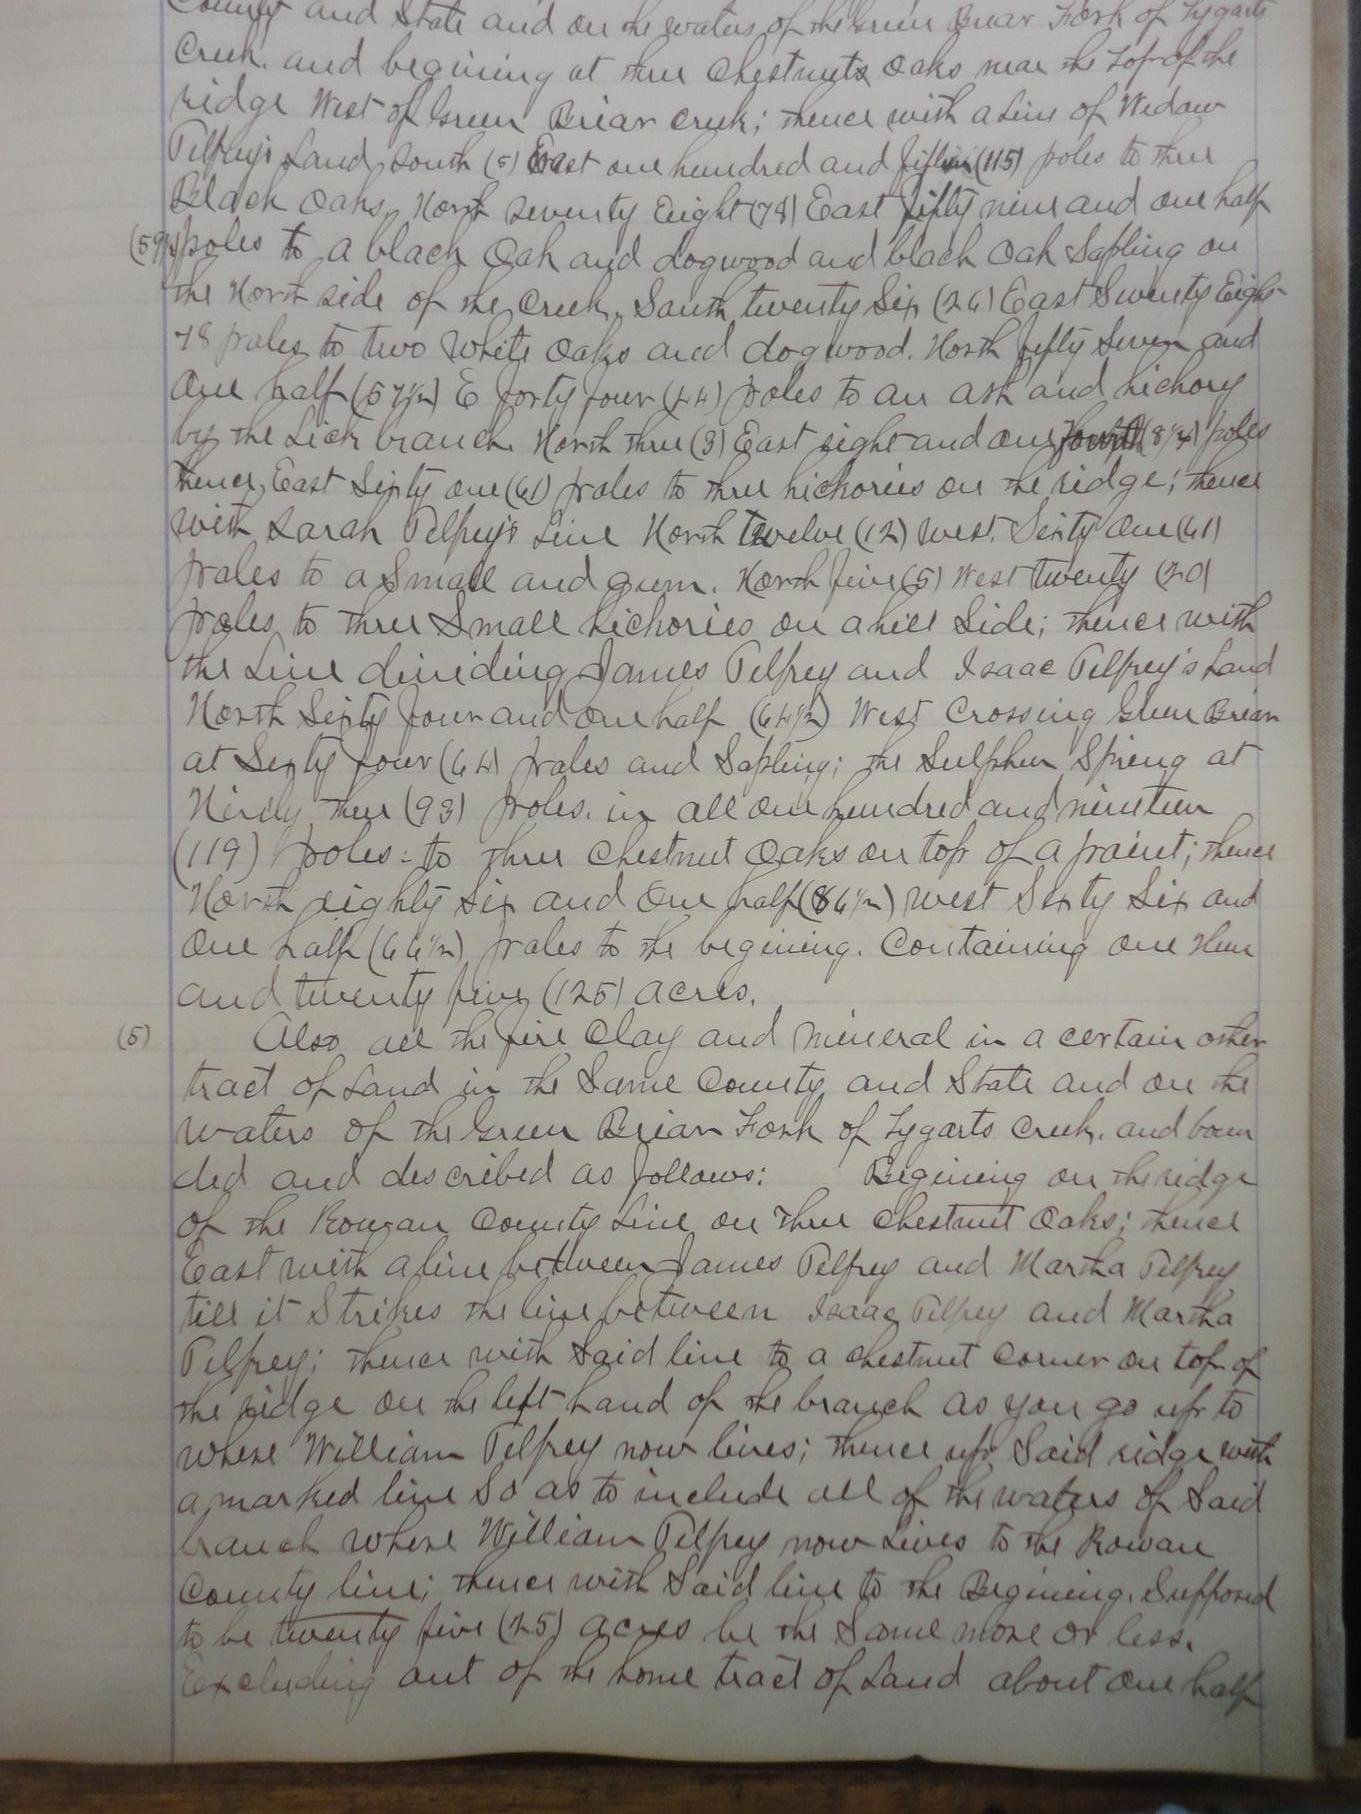 County and State and on the waters of the Green Briar Fork of Tygarts
Creek. and begining at three Chestnuts Oaks near the top of the
ridge West of Green Briar Creek; thence with a Line of Wedow
Pelfrey's Land South (5) East one hundred and fifteen (115) poles to three
Black Oaks, North seventy Eight (78) East fifty nine and one half
(59½) poles to a black Oak and dogwood and black Oak Sapling on
the North side of the Creek, South twenty Six (26) East Seventy Eight
78 poles to two White Oaks and dogwood. North fifty Seven and
One half (57½) E forty four (44) poles to an ash and hickory
by the Lick branch. North three (3) East eight and one fourth (8¼) poles
thence, East Sixty one (61) poles to three hickories on the ridge; thence
with Sarah Pelfrey's Line North twelve (12) West. Sixty One (61)
poles to a Small and gum. North five (5) West twenty (20)
poles, to three Small hickories on a hill Side; thence with
the Line dividing James Pelfrey and Isaac Pelfrey's Land
North Sixty four and one half (64½) West Crossing Green Briar
at Sixty four (64) poles and Sapling; the Sulphur Spring at
three (93) poles. in all one hundred and nineteen
(119) poles: to three Chestnut Oaks on top of a point; thence
North eighty six and One half (86½) west Sixty Six and
One half (66½) poles to the begining. Containing one Hun
and twenty five (125) acres.
(5) Also all the fire Clay and mineral in a certain other
tract of Land in the Same County and State and on the
waters of the Green Briar Fork of Tygarts Creek. and boun
ded and described as follows: Begining on the ridge
of the Rowan County Line on three Chestnut Oaks; thence
East with a line between James Pelfrey and Martha Pelfrey
till it Strikes the line between Isaac Pelfrey and Martha
Pelfrey; thence with Said line to a chestnut Corner on top of
the ridge on the left hand of the branch as you go up to
where William Pelfrey now lives; thence up Said ridge with
a marked line So as to include all of the waters of Said
branch where William Pelfrey now Lives to the Rowan
County line; thence with Said line to the Begining. Supposed
to be twenty five (25) acres be the Same more or less.
Excluding out of the home tract of Land about One half